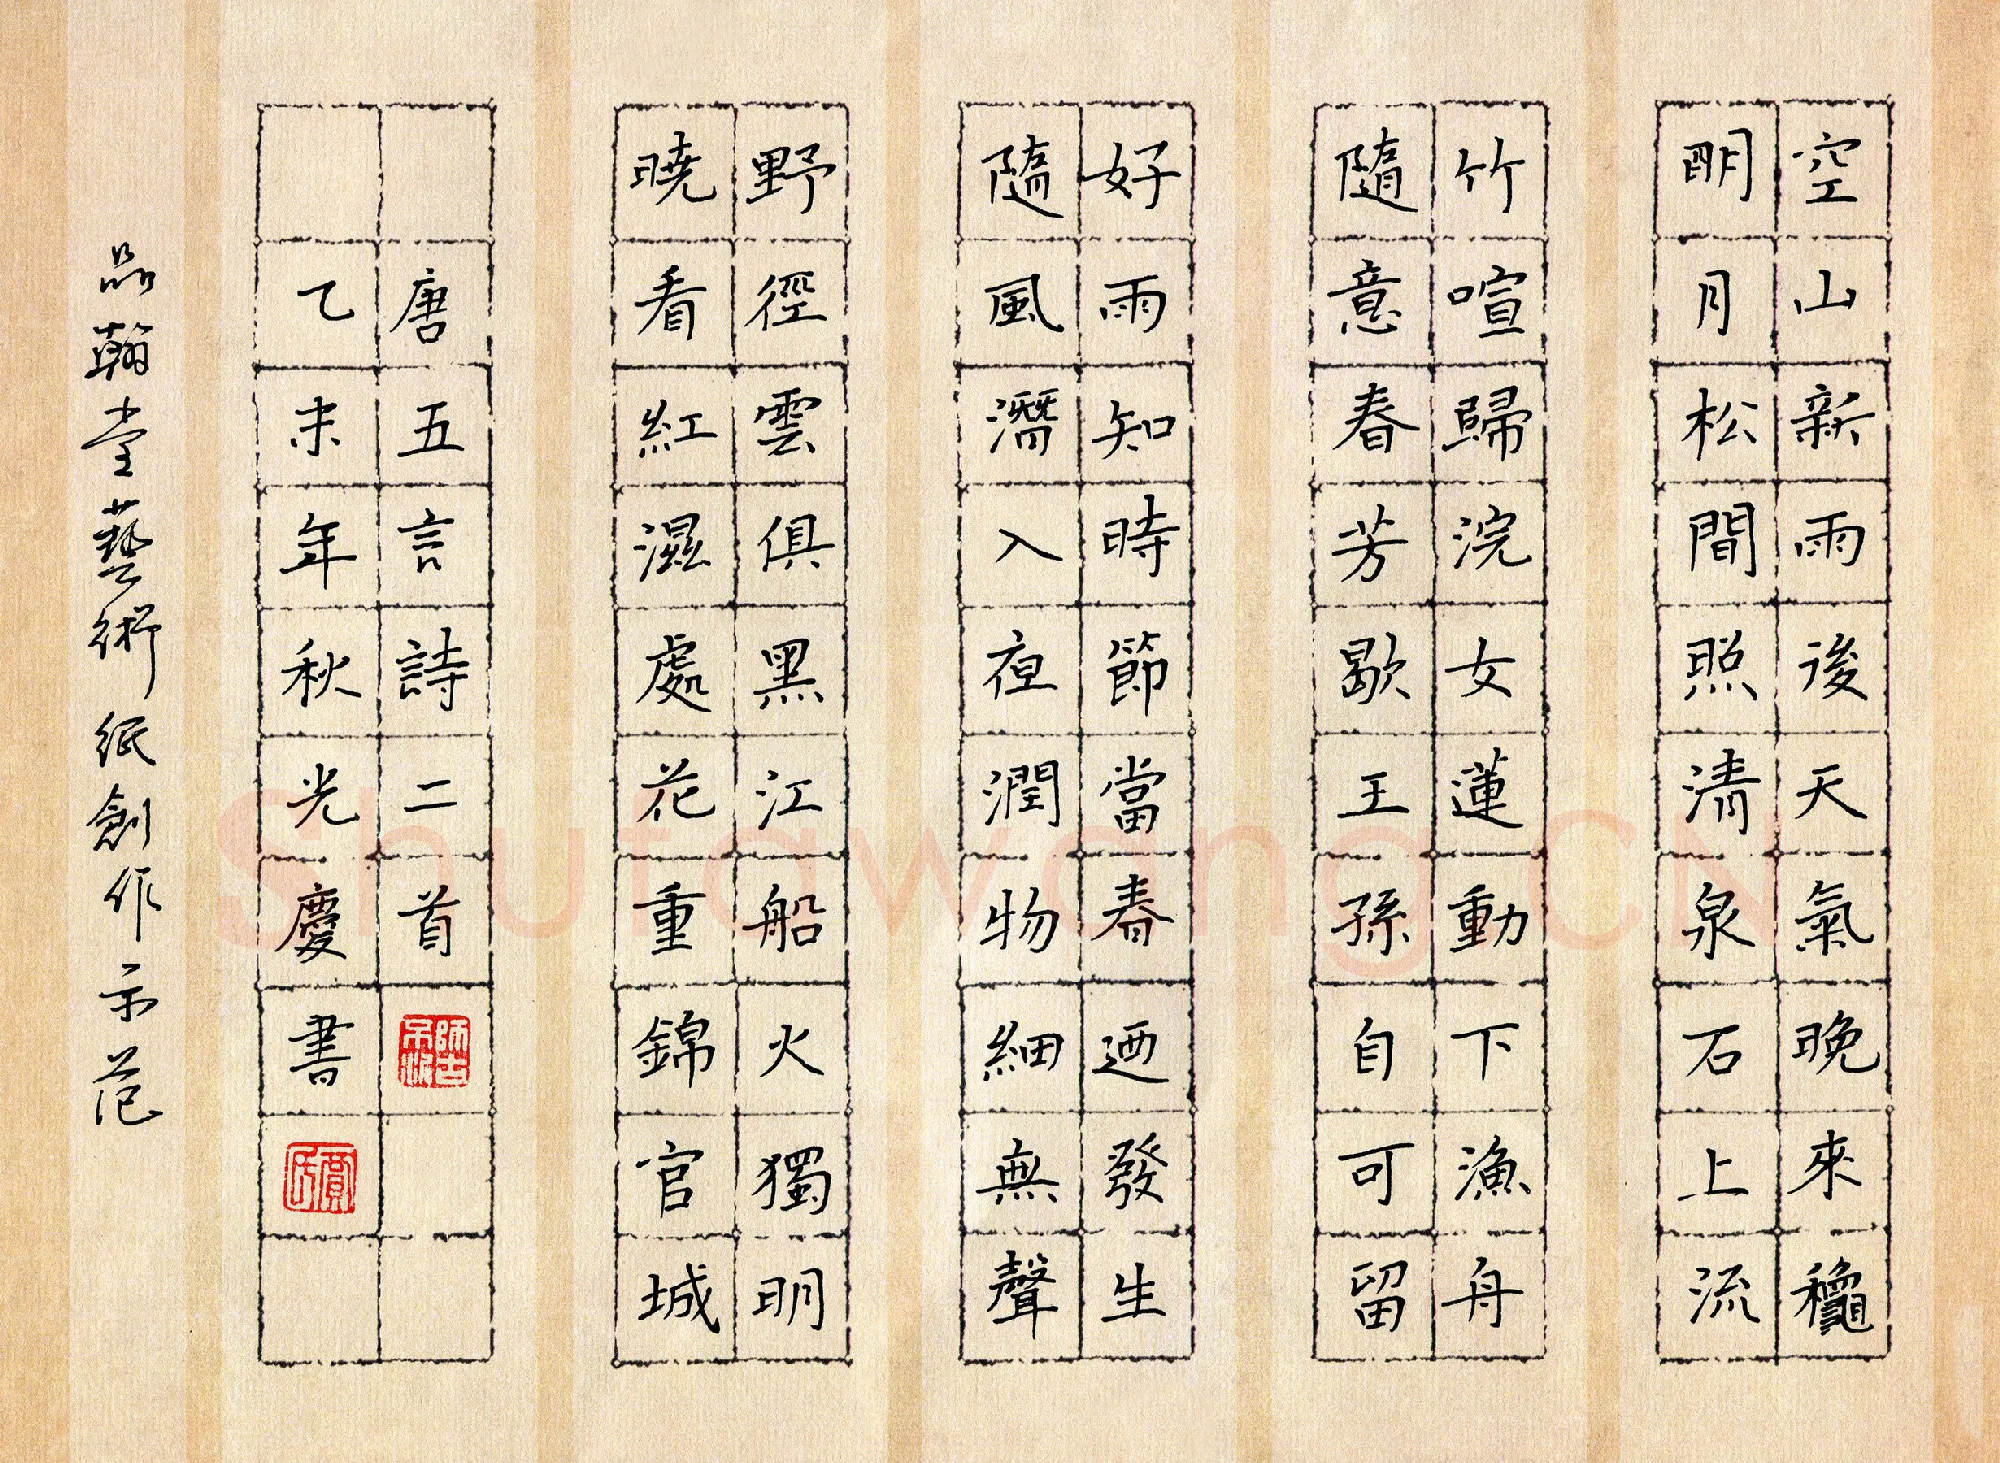 空山新雨後天氣晚來龝
明月松間照清泉石上流
竹喧歸浣女蓮動下漁舟
隨意春芳歇王孫自可留
好雨知時節當春迺發生
隨風潛入夜潤物細無聲
野徑雲俱黑江船火獨明
曉看紅濕處花重錦官城
唐五言詩二首
師古不泥
乙未年秋光慶書
賈氏
品翰堂藝術紙創作示范
Shufawang.CN